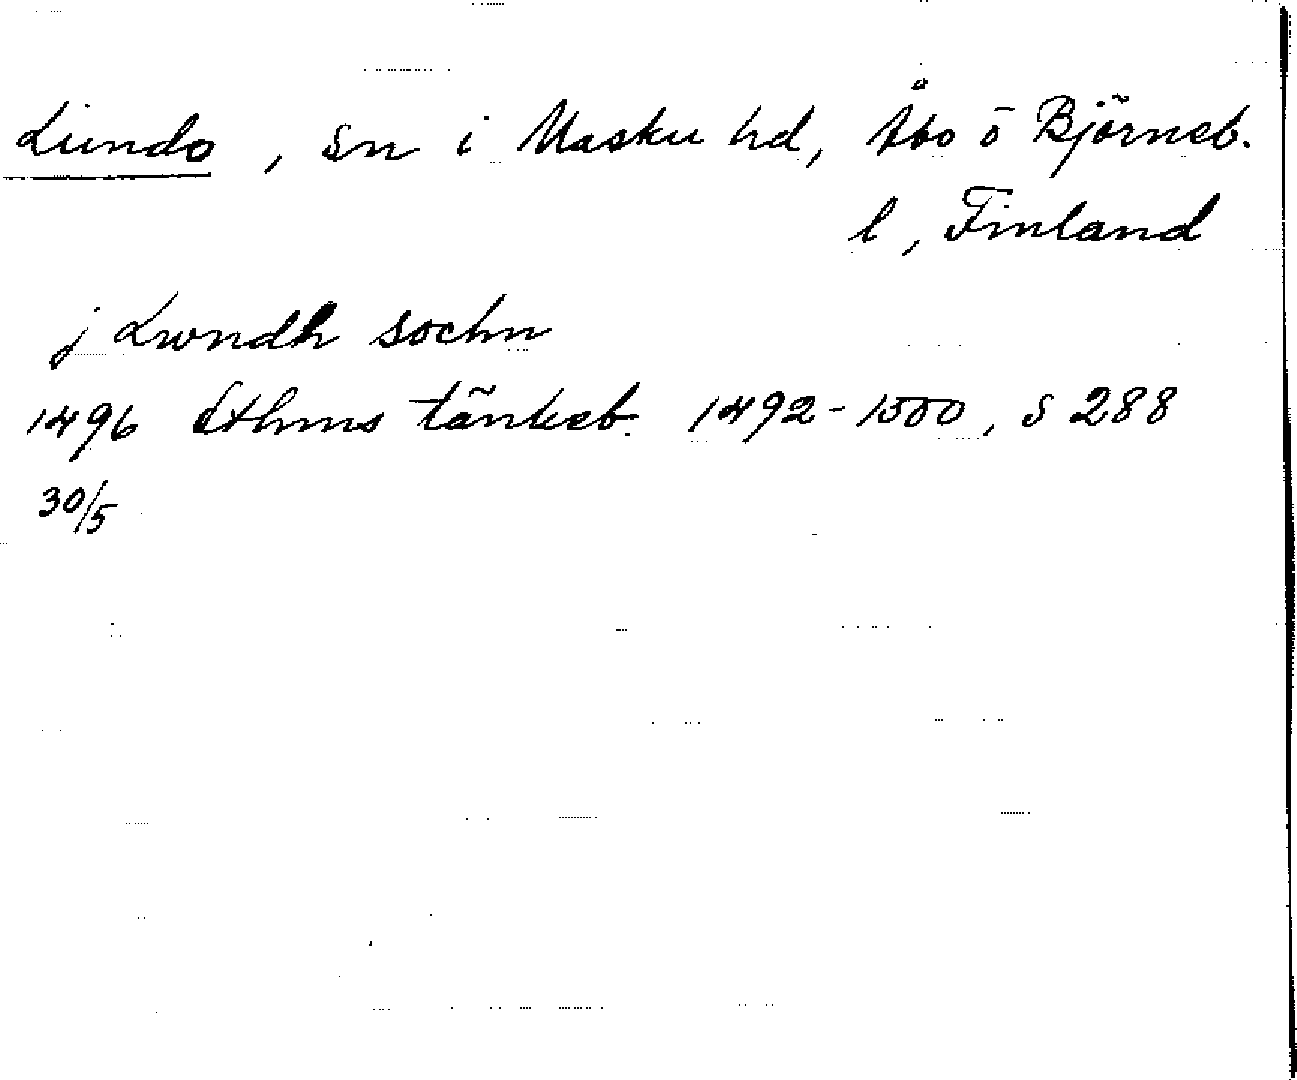 Lundo, sn i Masku hd, Åbo o Björneb.
l, Finland
j Lwndh sochn
1496 Sthms tänkeb. 1492-1500, s 288
30/5